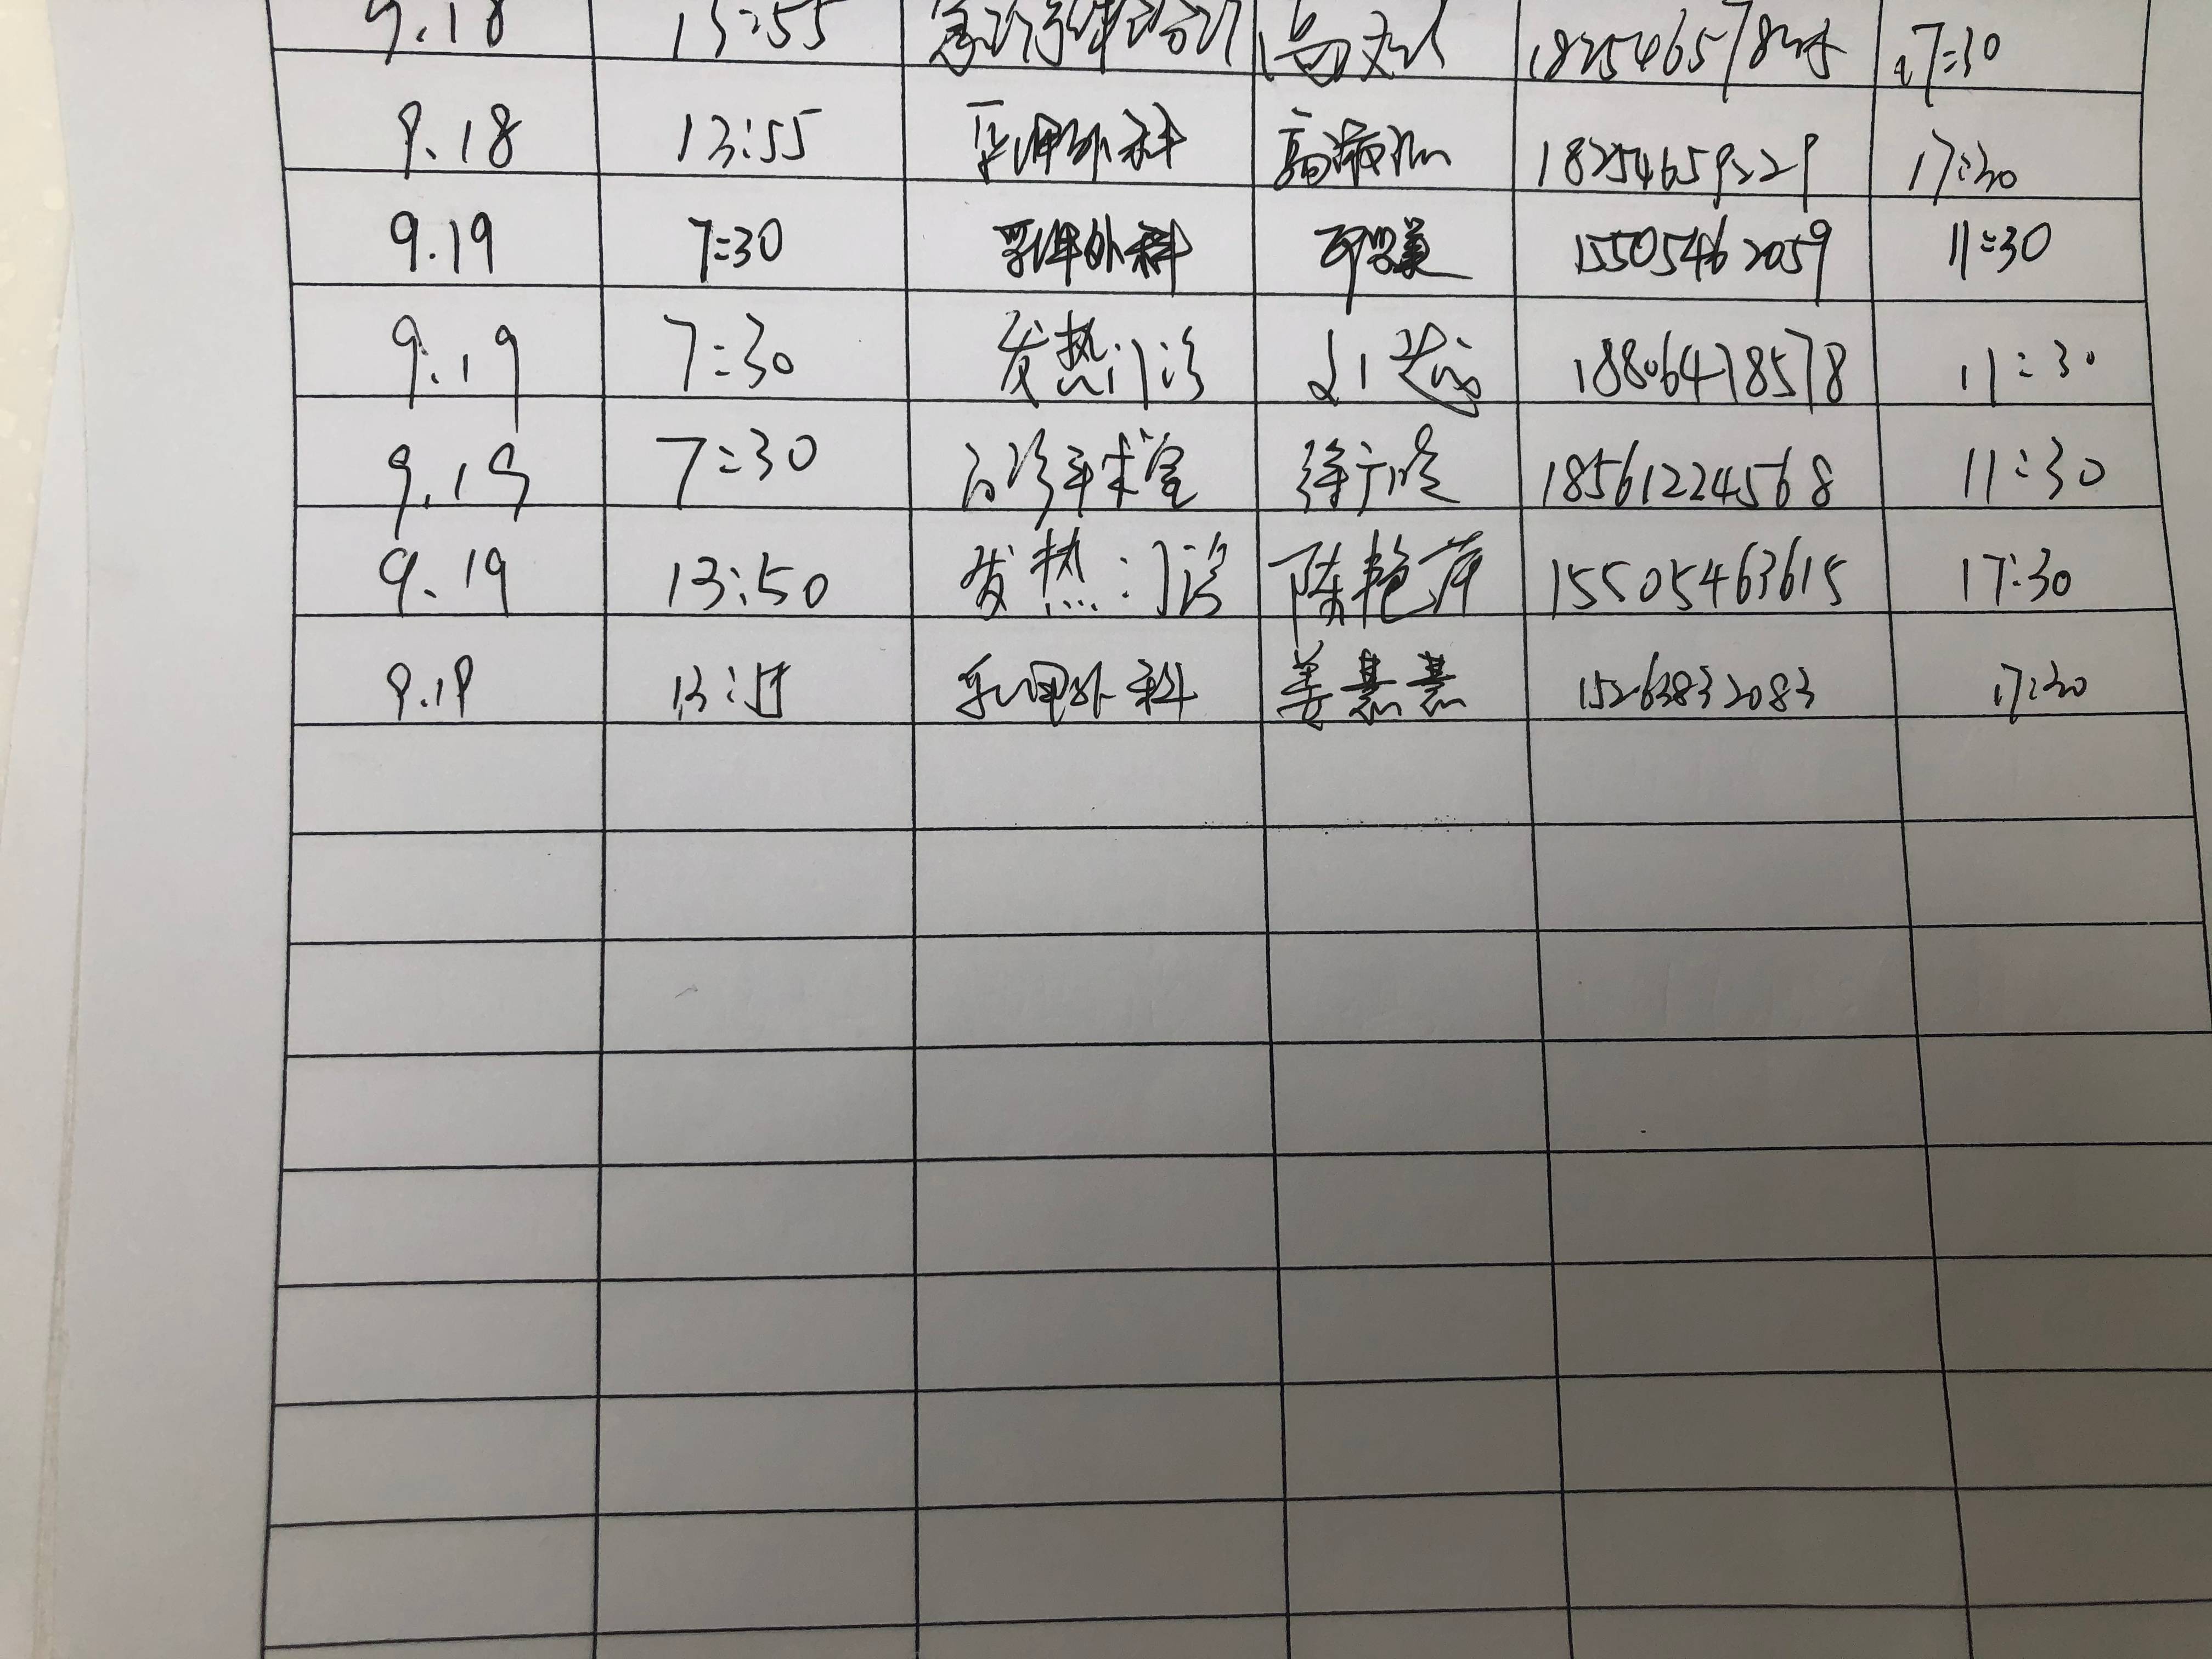 9.18 13:55 17:30
9.18 13:55 乳甲外科 高 18254659229 17:30
9.19 7:30 乳甲外科 15505462059 11:30
9.19 7:30 发热门诊 18806478578 11:30
9.19 7:30 门诊手术室 徐广 18561224568 11:30
9.19 13:50 发热门诊 陈艳萍 15505463615 17:30
9.19 13:55 乳甲外科 姜慧慧 15263832083 17:30